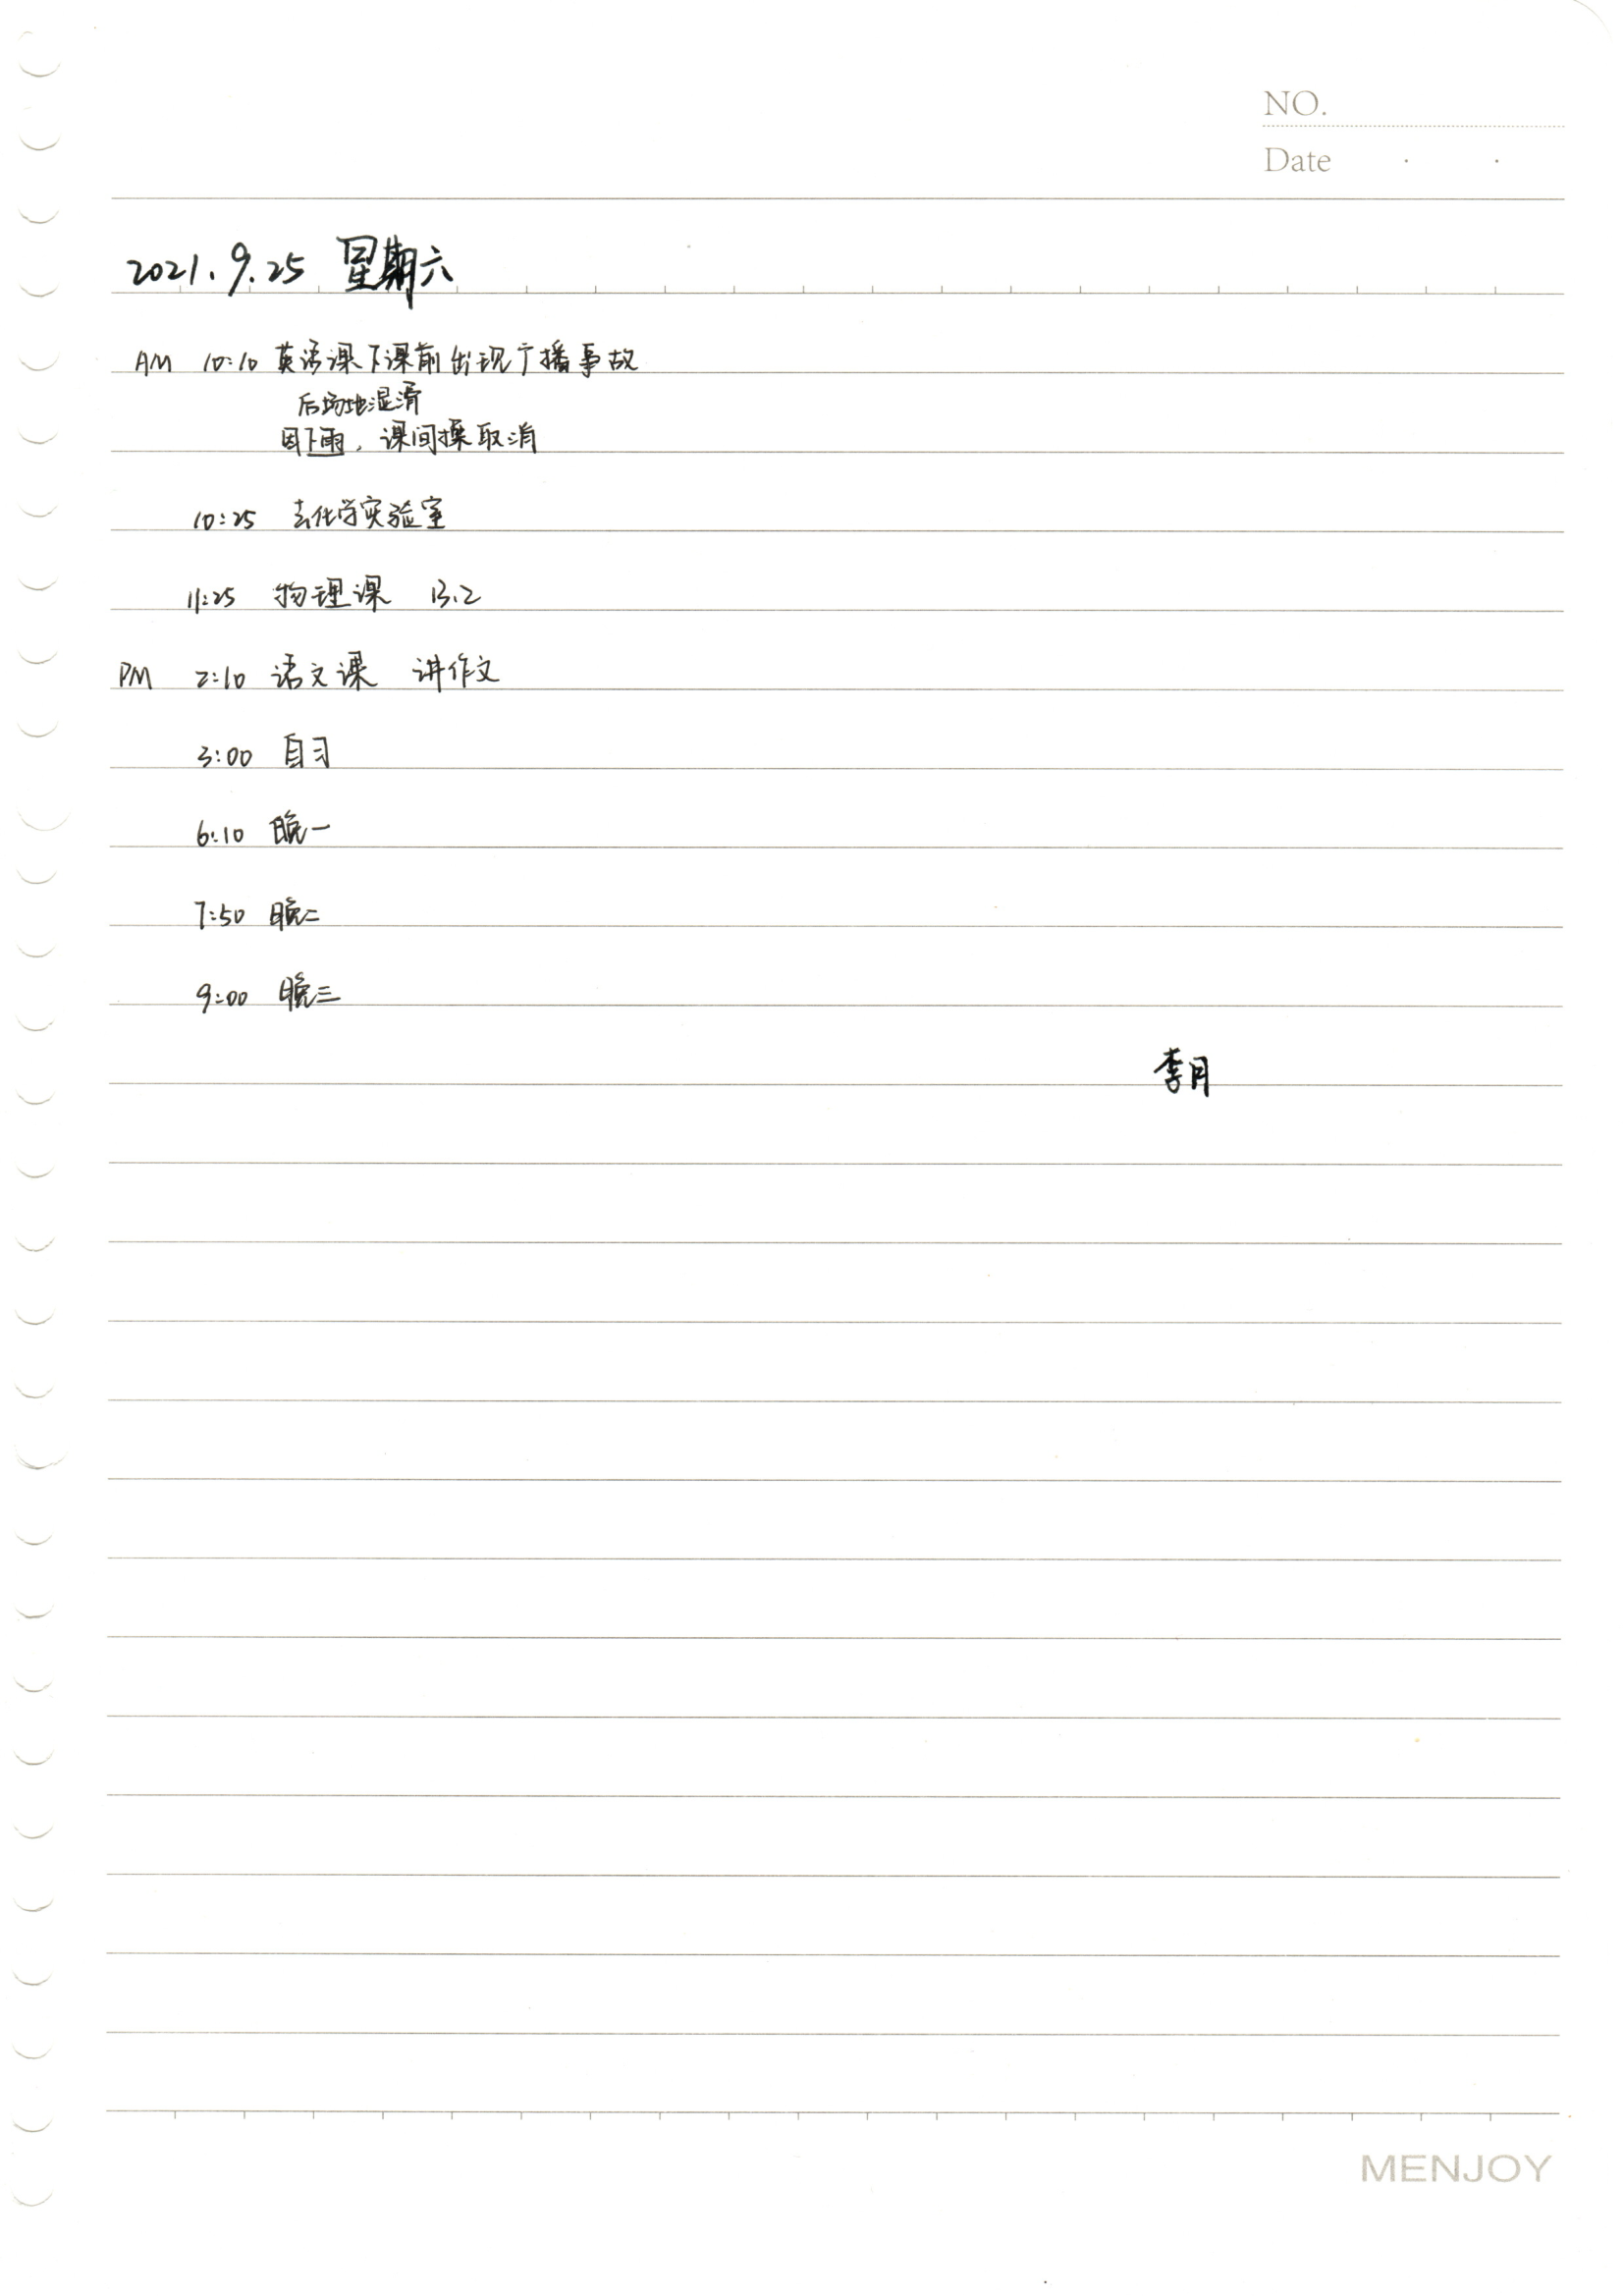 NO.
Date · ·
2021.9.25 星期六
AM 10:10 英语课下课前出现广播事故
后场地湿滑
因下雨，课间操取消
10:25 去化学实验室
11:25 物理课 13.2
PM 2:10 语文课 讲作文
3:00 自习
6:10 晚一
7:50 晚二
9:00 晚三
李月
MENJOY